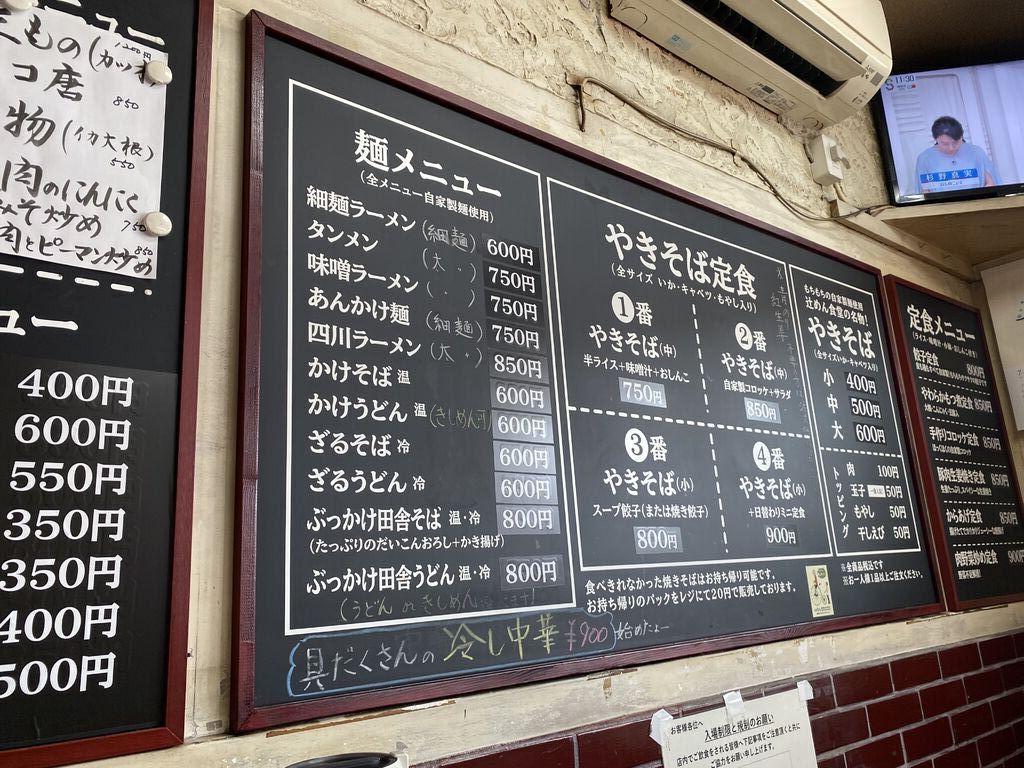 ュー
1200円
850
コ唐
物(イカ大根)
550
肉のにんにく
みそ炒め 750
肉とピーマン炒め 850
ュー
400円
600円
550円
350円
350円
400円
500円
麺メニュー
(全メニュー自家製麺使用)
細麺ラーメン (細麺) 600円
タンメン (太〃) 750円
味噌ラーメン (〃) 750円
あんかけ麺 (細麺) 750円
四川ラーメン (太〃) 850円
かけそば 温 600円
かけうどん 温 (きしめん可) 600円
ざるそば 冷 600円
ざるうどん 冷 600円
ぶっかけ田舎そば 温・冷 800円
(たっぷりのだいこんおろし+かき揚げ)
ぶっかけ田舎うどん 温・冷 800円
(うどん or きしめん
具だくさんの 冷し中華 ¥900 始めたニュー
やきそば定食
(全サイズ いか・キャベツ・もやし入り)
1番
やきそば(中)
半ライス+味噌汁+おしんこ
750円
2番
やきそば(中)
自家製コロッケ+サラダ
850円
3番
やきそば(小)
スープ餃子(または焼き餃子)
800円
4番
やきそば(小)
+日替わりミニ定食
900円
もちもちの自家製麺使用
辻めん食堂の名物!
やきそば
(全サイズいか・キャベツ入り)
小 400円
中 500円
大 600円
トッピング
肉 100円
玉子 50円
もやし 50円
干しえび 50円
食べきれなかった焼きそばはお持ち帰り可能です。
お持ち帰りのパックをレジにて20円で販売しております。
※全商品税込です
※お一人様1品以上ご注文ください。
定食メニュー
(ライス・味噌汁・小鉢・おしんこ付き)
餃子定食 800円
やわらかもつ煮定食 850円
手作りコロッケ定食 850円
豚肉生姜焼き定食 850円
からあげ定食 850円
肉野菜炒め定食 900円
11:30
杉野真実
お客様各位へ
入場制限と規制のお願い
店内でご飲食をされる皆様へ下記事項をご注意頂くと共に
ご協力をお願い申し上げます。